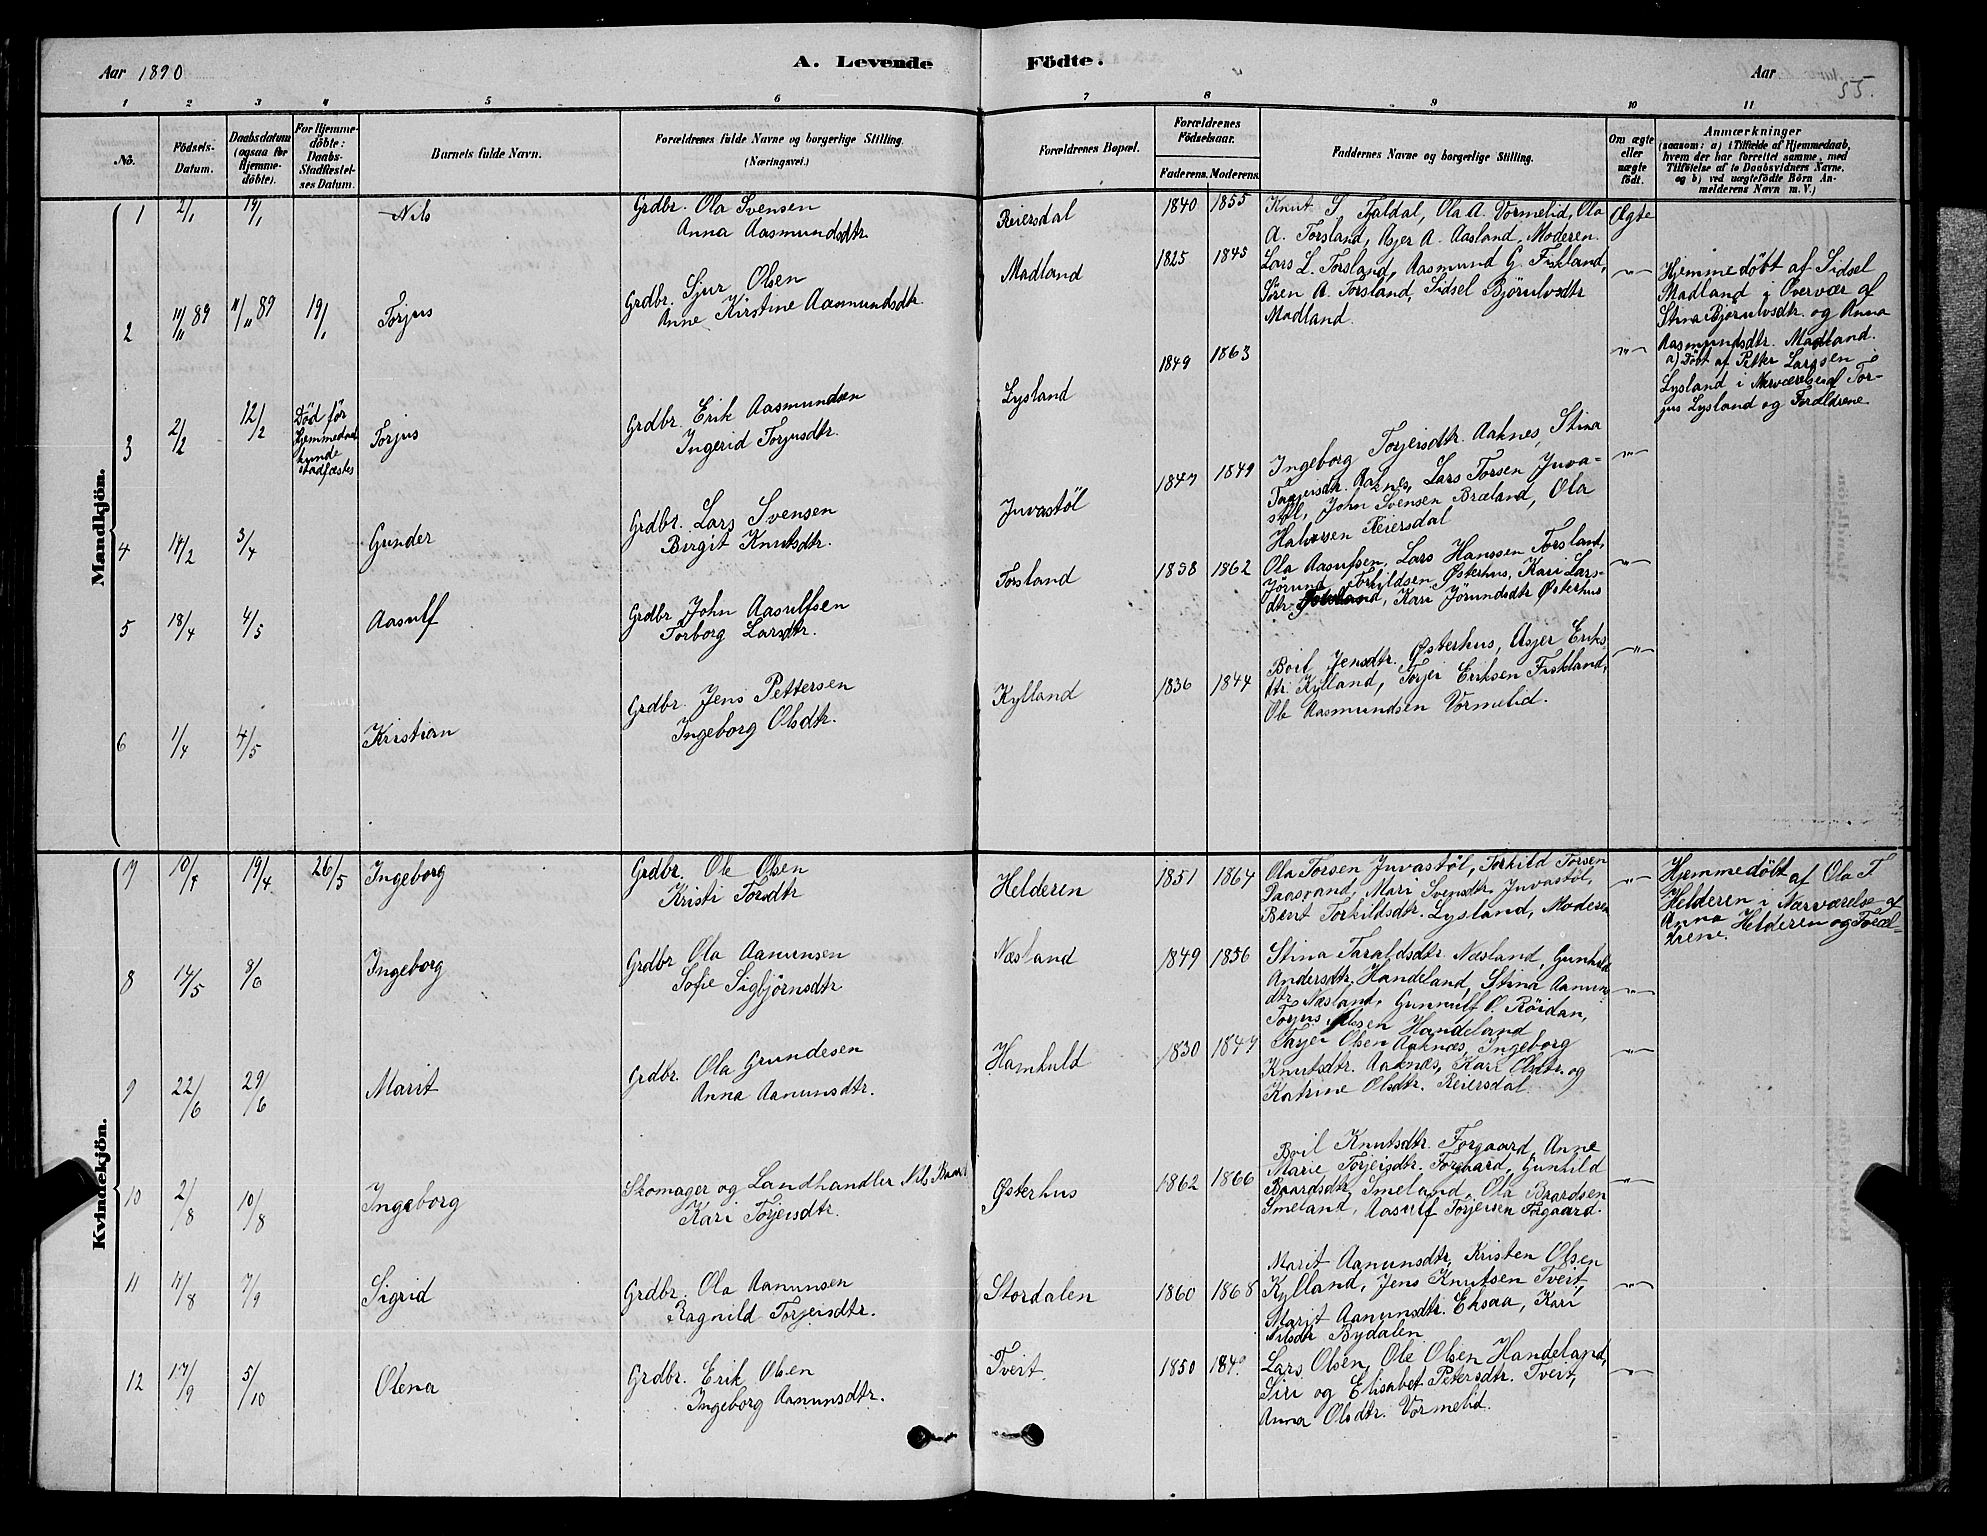 Aar 1890
A. Levende Födte.
Aar
55.
1 2 3 4 5 6 7 8 9 10 11
No.
Födsels-
Datum.
Daabsdatum
(ogsaa for
Hjemme-
döbte).
For Hjemme-
döbte:
Daabs-
Stadfæstel-
ses Datum.
Barnets fulde Navn.
Forældrenes fulde Navne og borgerlige Stilling.
(Næringsvei.)
Forældrenes Bopæl.
Forældrenes
Födselsaar.
Faderens. Moderens.
Faddernes Navne og borgerlige Stilling.
Om ægte
eller
uægte
födt.
Anmærkninger
(saasom: a) i Tilfælde af Hjemmedaab,
hvem der har forrettet samme, med
Tilföielse af to Daabsvidners Navne,
og b) ved uægtefödte Börn An-
melderens Navn m. V.)
Mandkjön.
1 2/1 19/1 Nils
Grdbr. Ola Svensen
Anna Aasmundsdtr.
Reiersdal 1840 1855
Knut S. Fjaldal, Ola A. Vormelid, Ola
A. Torsland, Asjer A. Aasland, Moderen.
Ægte
2 11/11 89 11/11 89 19/1 Torjus
Grdbr. Sjur Olsen
Anne Kirstine Aasmundsdtr.
Madland 1825 1845
Lars L. Torsland, Aasmund G. Fiskland,
Sören A. Torsland, Sidsel Björnlvsdtr
Madland.
-"-
Hjemmedöbt af Sidsel
Madland i Overvær af
Stina Bjørnulvsdtr. og Anna
Aasmundsdtr. Madland.
3 2/2 12/2
Död för
Hjemmedaab
kunde
stadfæstes
Torjus
Grdbr. Erik Aasmundsen
Ingerid Torjusdtr.
Lysland 1849 1863
-"-
a) Döbt af Petter Larssen
Lysland i Nærværelse af Tor-
jus Lysland og Forældrene
4 14/2 3/4 Gunder
Grdbr. Lars Svensen
Birgit Knutsdtr.
Juvastöl 1847 1849
Ingeborg Torjeisdtr. Aaknes, Stina
Taajeisdtr. Aaknes, Lars Torsen Juva-
stöl, John Svensen Bræland, Ola
Halvorsen Reiersdal
-"-
5 18/4 4/5 Aasulf
Grdbr John Aasulfsen
Torborg Larsdtr.
Torsland 1838 1862
Ola Aasufsen, Lars Hanssen Torsland,
Jörund Torkildsen Østerhus, Kari Lars-
dtr. Torsland, Kari Jörundsdtr Østerhus
-"-
6 1/4 4/5 Kristian
Grdbr. Jens Pettersen
Ingeborg Olsdtr.
Kylland 1836 1844
Boil Jensdtr. Østerhus, Asjer Eriks
dtr. Kylland, Torjer Eriksen Fiskland,
Ole Aasmundsen Vormelid.
-"-
Kvindekjön.
7 10/4 19/4 26/5 Ingeborg
Grdbr. Ole Olsen
Kristi Torsdtr
Helderen 1851 1864
Ola Torsen Juvastøl, Torkild Torsen
Daasvand, Mari Svensdtr. Juvastøl,
Berit Torkildsdtr. Lysland, Moderen
-"-
Hjemmedöbt af Ola T.
Helderen i Nærværelse af
Anna Helderen og Foræl-
drene.
8 14/5 8/6 Ingeborg
Grdbr Ola Aanunsen
Sofie Sigbjörnsdtr
Næsland 1849 1856
Stina Taraldsdtr. Næsland, Gunhild
Andersdtr. Handeland, Stina Aanuns-
dtr. Næsland, Gunnulf O. Röidan,
Torjus Olsen Handeland
-"-
9 22/6 29/6 Marit
Grdbr. Ola Gundesen
Anna Aanunsdtr.
Homhuld 1830 1847
Tarjer Olsen Aaknæs, Ingeborg
Knutsdtr. Aaknæs, Kari Olsdtr. og
Katrine Olsdtr. Reiersdal.
-"-
10 2/8 10/8 Ingeborg
Skomager og Landhandler Nils Knuts
Kari Torjersdtr.
Østerhus 1862 1866
Boil Knutsdtr. Forgaard, Anne
Marie Torjeisdtr. Forgaard, Gunhild
Baardsdtr. Smeland, Ola Baardsen
Smeland, Aasulf Torjeisen Forgaard.
-"-
11 4/8 7/9 Sigrid
Grdbr. Ola Aanunsen
Ragnild Torjersdtr.
Stordalen 1860 1868
Marit Aanunsdtr, Kristen Olsen
Kylland, Jens Knutsen Tveit,
Marit Aanunsdtr. Eksaa, Kari
Nilsdtr Bydalen
-"-
12 17/9 5/10 Olena
Grdbr. Erik Olsen
Ingeborg Aanunsdtr.
Tveit. 1850
Lars Olsen, Ole Olsen Handeland,
Siri og Elisabet Petersdtr. Tveit,
Anna Olsdtr. Vormelid.
-"-